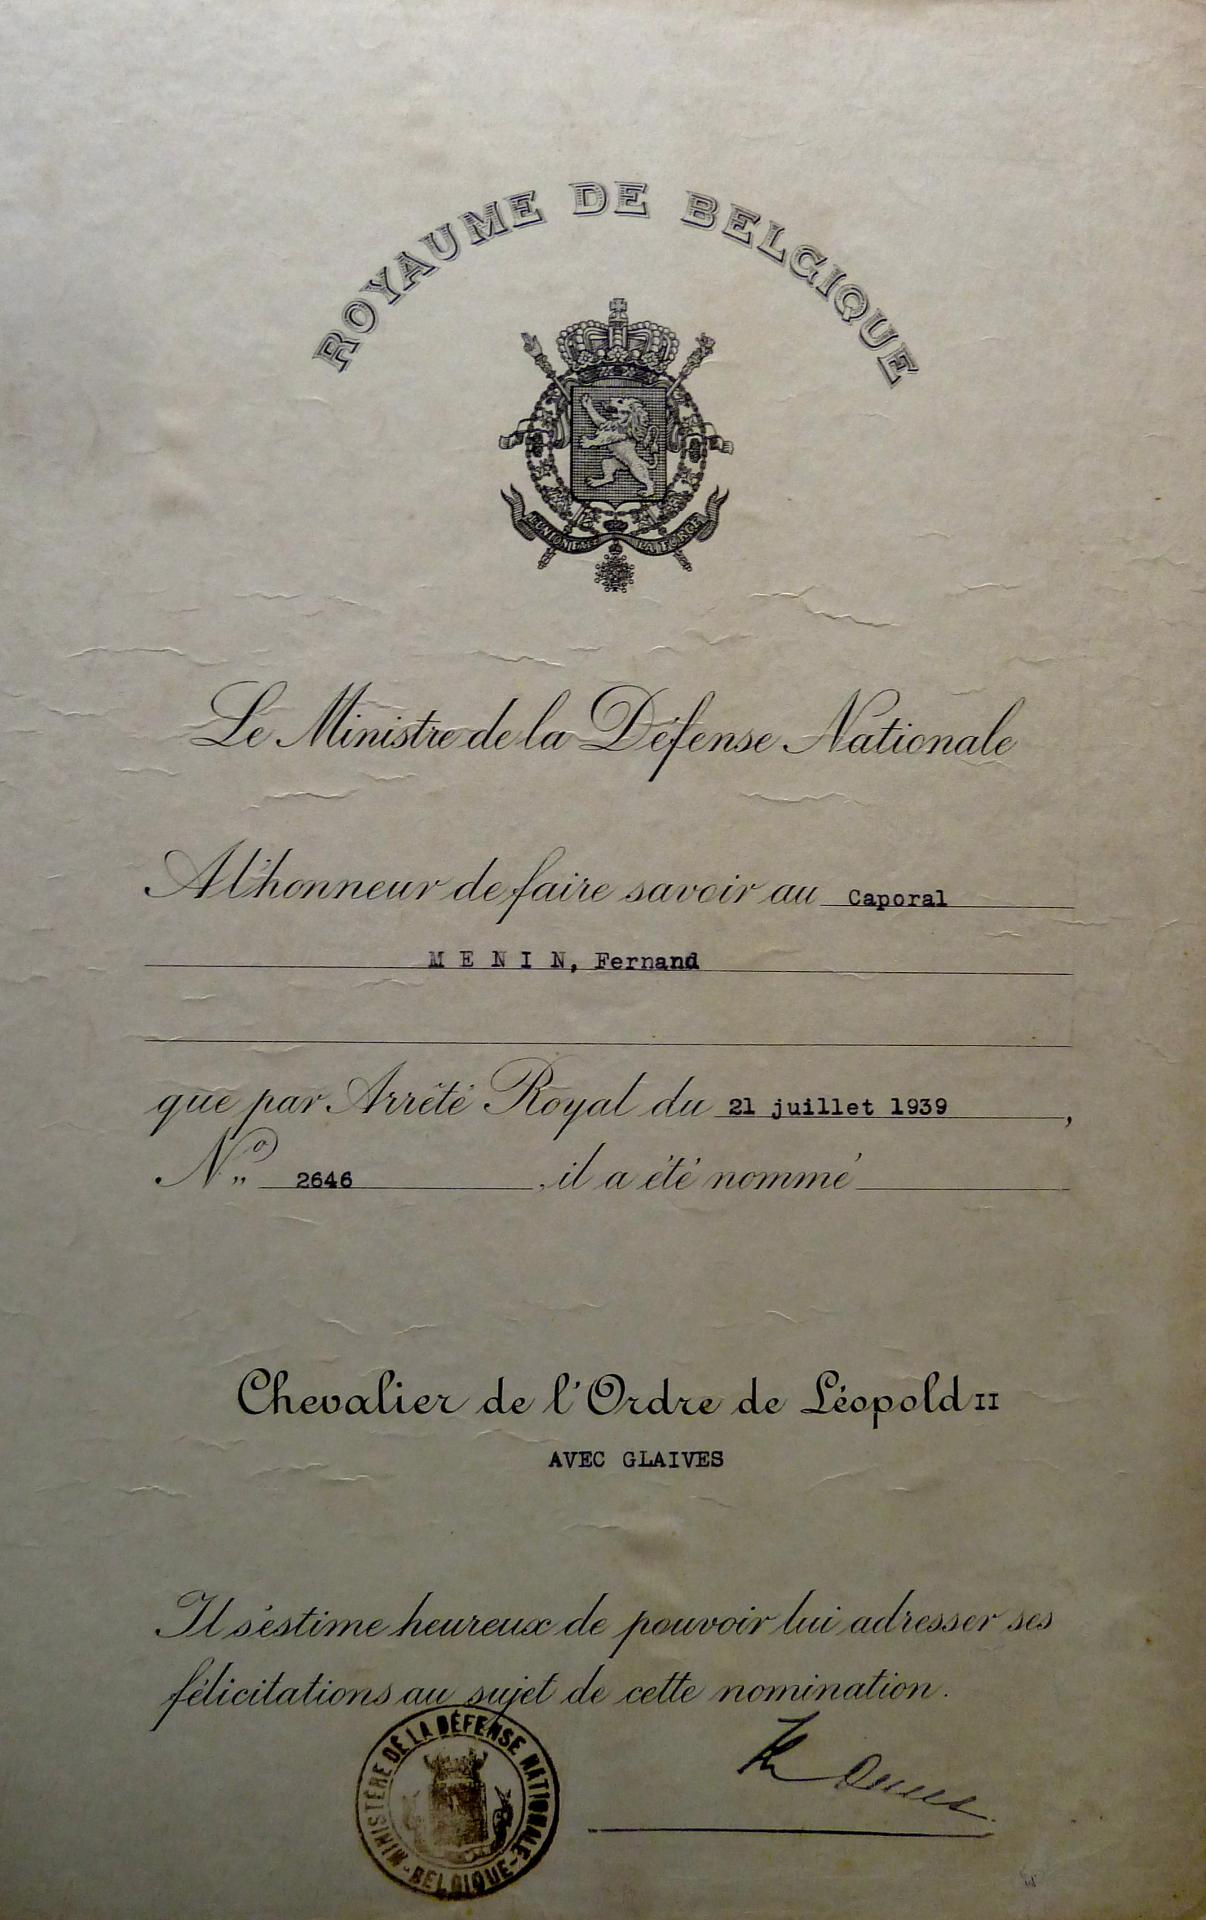 ROYAUME DE BELGIQUE
Le Ministre de la Défense Nationale
A l'honneur de faire savoir au Caporal
MENIN, Fernand
que par Arrêté Royal du 21 juillet 1939,
No 2646, il a été nommé
Chevalier de l'Ordre de Léopold II
AVEC GLAIVES
Il s'estime heureux de pouvoir lui adresser ses
félicitations au sujet de cette nomination.
MINISTÈRE DE LA DÉFENSE NATIONALE
- BELGIQUE -